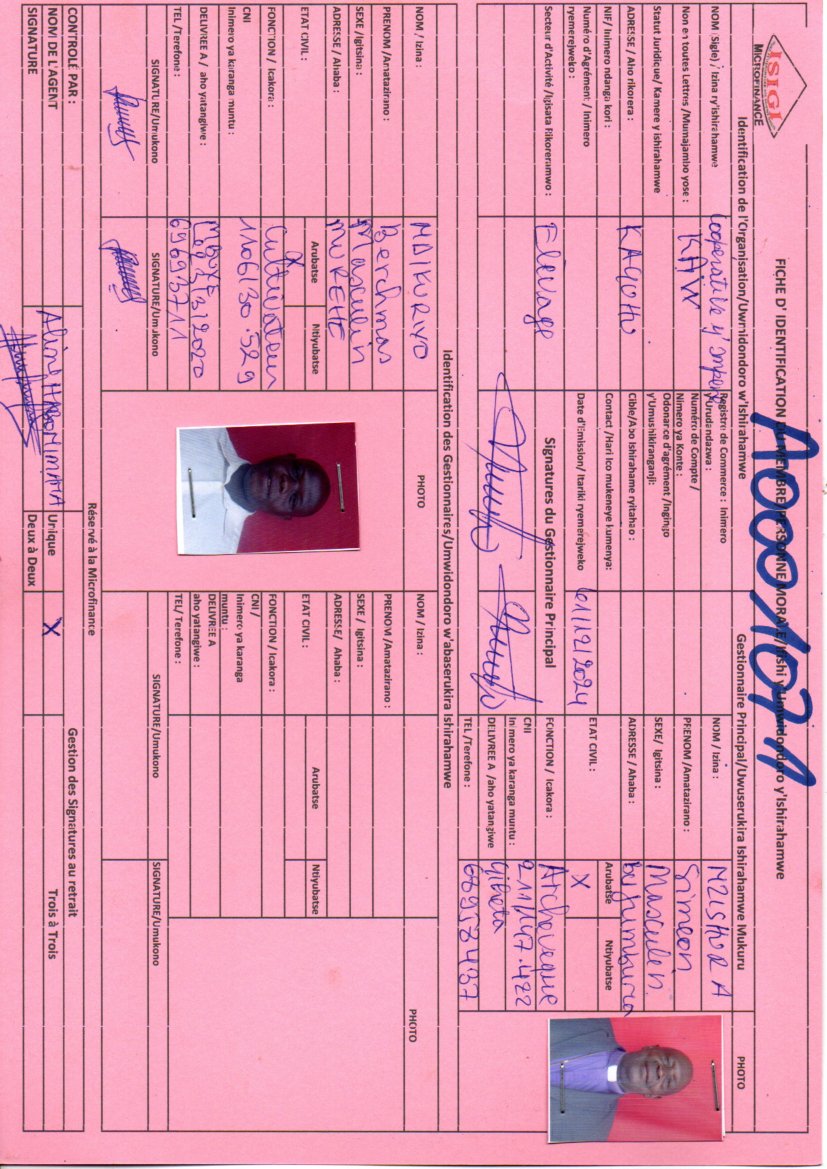 ISIGI
MICROFINANCE
FICHE D' IDENTIFICATION DU MEMBRE (PERSONNE MORALE/Urushi y'Umwidondoro y'Ishirahamwe
A0001071
Identification de l'Organisation/Uwmidondoro w'Ishirahamwe
Gestionnaire Principal/Uwuserukira Ishirahamwe Mukuru
PHOTO
NOM (Sigle) / Izina ry'ishirahamwe
Non en toutes Lettres /Mumajambo yose :
Statut Juridique/ Kamere y ishirahamwe
ADRESSE / Aho rikorera :
KAYOHO
NIF/ Inimero ndanga kori :
Numéro d'Agrément / Inimero
ryemerejweko :
Secteur d'Activité /Igisata Rikoreramwo :
Elevage
Registre de Commerce : Inimero
y'Urudandazwa :
Numéro de Compte /
Nimero ya Konte :
Odonance d'agrément /Ingingo
y'Umushikiranganji:
Cible/Abo Ishirahame ryitaho :
Contact /Hari ico mukeneye kumenya:
Date d'Emission/ Itariki ryemerejweko
Signatures du Gestionnaire Principal
NOM / Izina :
PRENOM /Amatazirano :
Simeon
SEXE/ Igitsina :
Masculin
ADRESSE / Ahaba :
Bujumbura
ETAT CIVIL :
Arubatse
Ntiyubatse
X
FONCTION / Icakora :
Archeveque
CNI
Inimero ya karanga muntu :
211/147.422
DELIVREE A /aho yatangiwe
Giheta
TEL /Terefone :
Identification des Gestionnaires/Umwidondoro w'abaserukira Ishirahamwe
NOM / Izina :
NDIKURIYO
PHOTO
NOM / Izina :
PHOTO
PRENOM /Amatazirano :
Berchmas
PRENOM /Amatazirano :
SEXE /Igitsina :
Masculin
SEXE / Igitsina :
ADRESSE / Ahaba :
MUREHE
ADRESSE/ Ahaba :
ETAT CIVIL :
Arubatse
Ntiyubatse
X
ETAT CIVIL :
Arubatse
Ntiyubatse
FONCTION / Icakora :
Cultivateur
FONCTION / Icakora :
CNI /
Inimero ya karanga
muntu :
Inimero ya karanga muntu :
1106/30.529
DELIVREE A / aho yatangiwe :
DELIVREE A
aho yatangiwe :
TEL /Terefone :
69693711
TEL/ Terefone :
SIGNATURE/Umukono
SIGNATURE/Umukono
SIGNATURE/Umukono
SIGNATURE/Umukono
Réservé à la Microfinance
CONTROLÉ PAR :
Gestion des Signatures au retrait
NOM DE L'AGENT
Unique
Trois à Trois
SIGNATURE
Deux à Deux
X